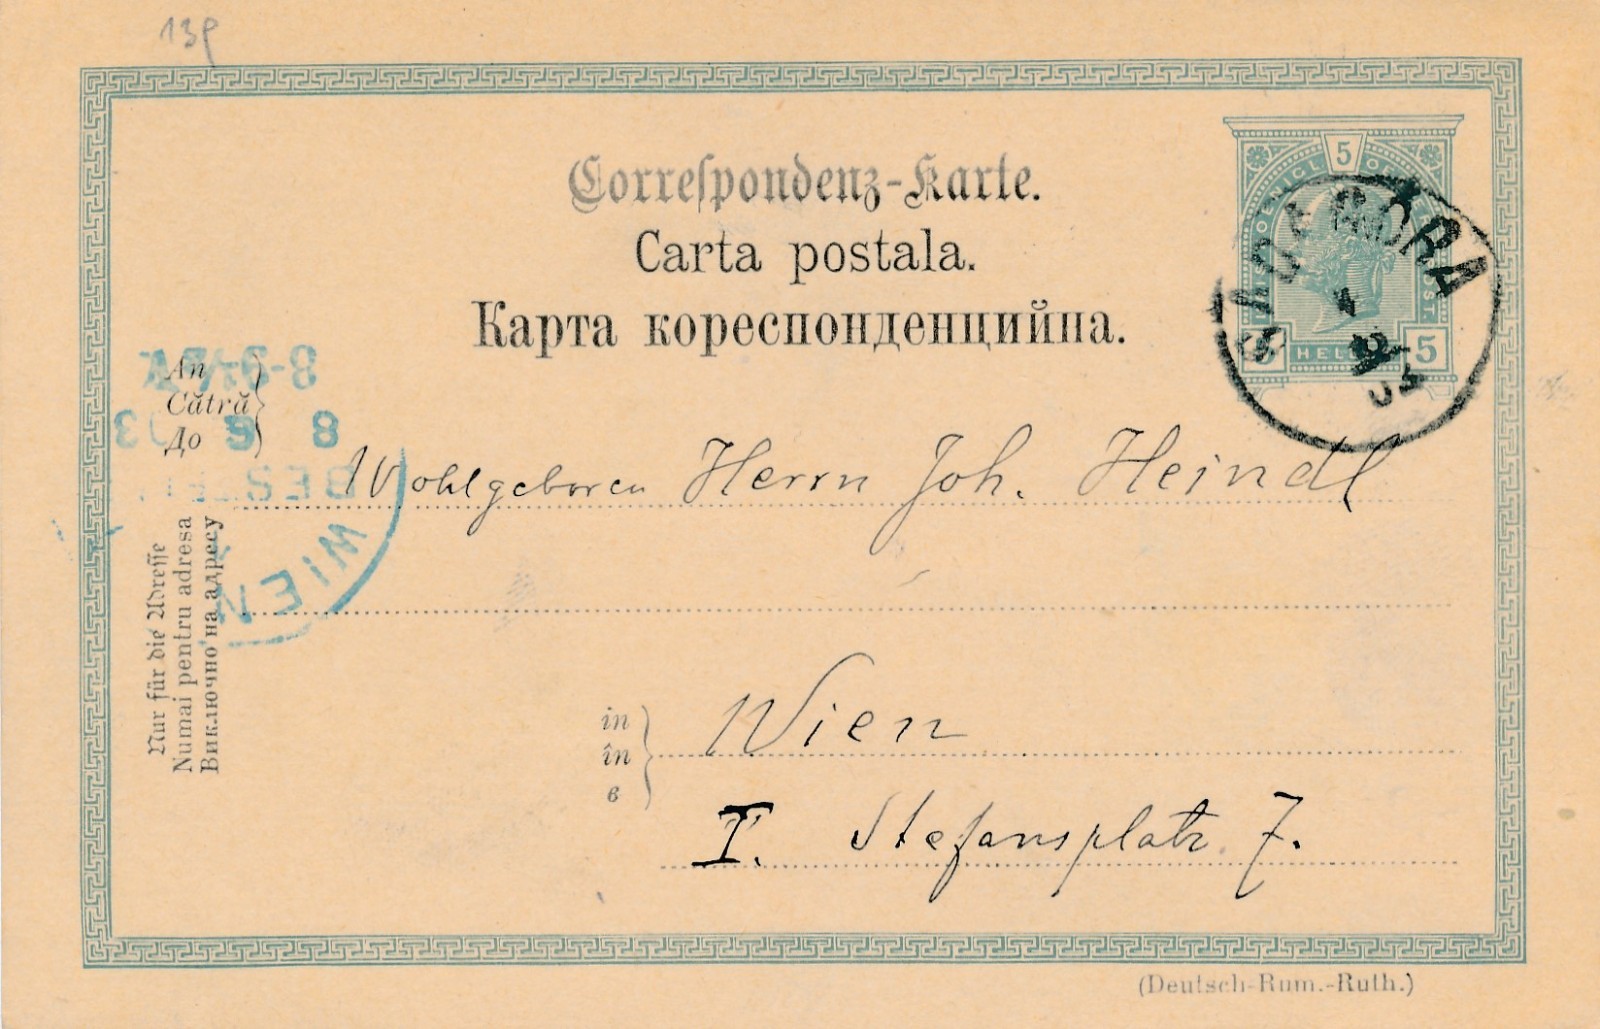 139
Correspondenz-Karte.
Carta postala.
Карта кореспонденцийна.
5
5 HELLER 5
SADAGÓRA
03
An
Cătră
До
8-9½V
8 6 03
BESTELLT
WIEN
Wohlgeboren Herrn Joh. Heindl
Nur für die Adresse
Numai pentru adresa
Виключно на адресу
in
în
в
Wien
I. Stefansplatz 7.
(Deutsch-Rum.-Ruth.)